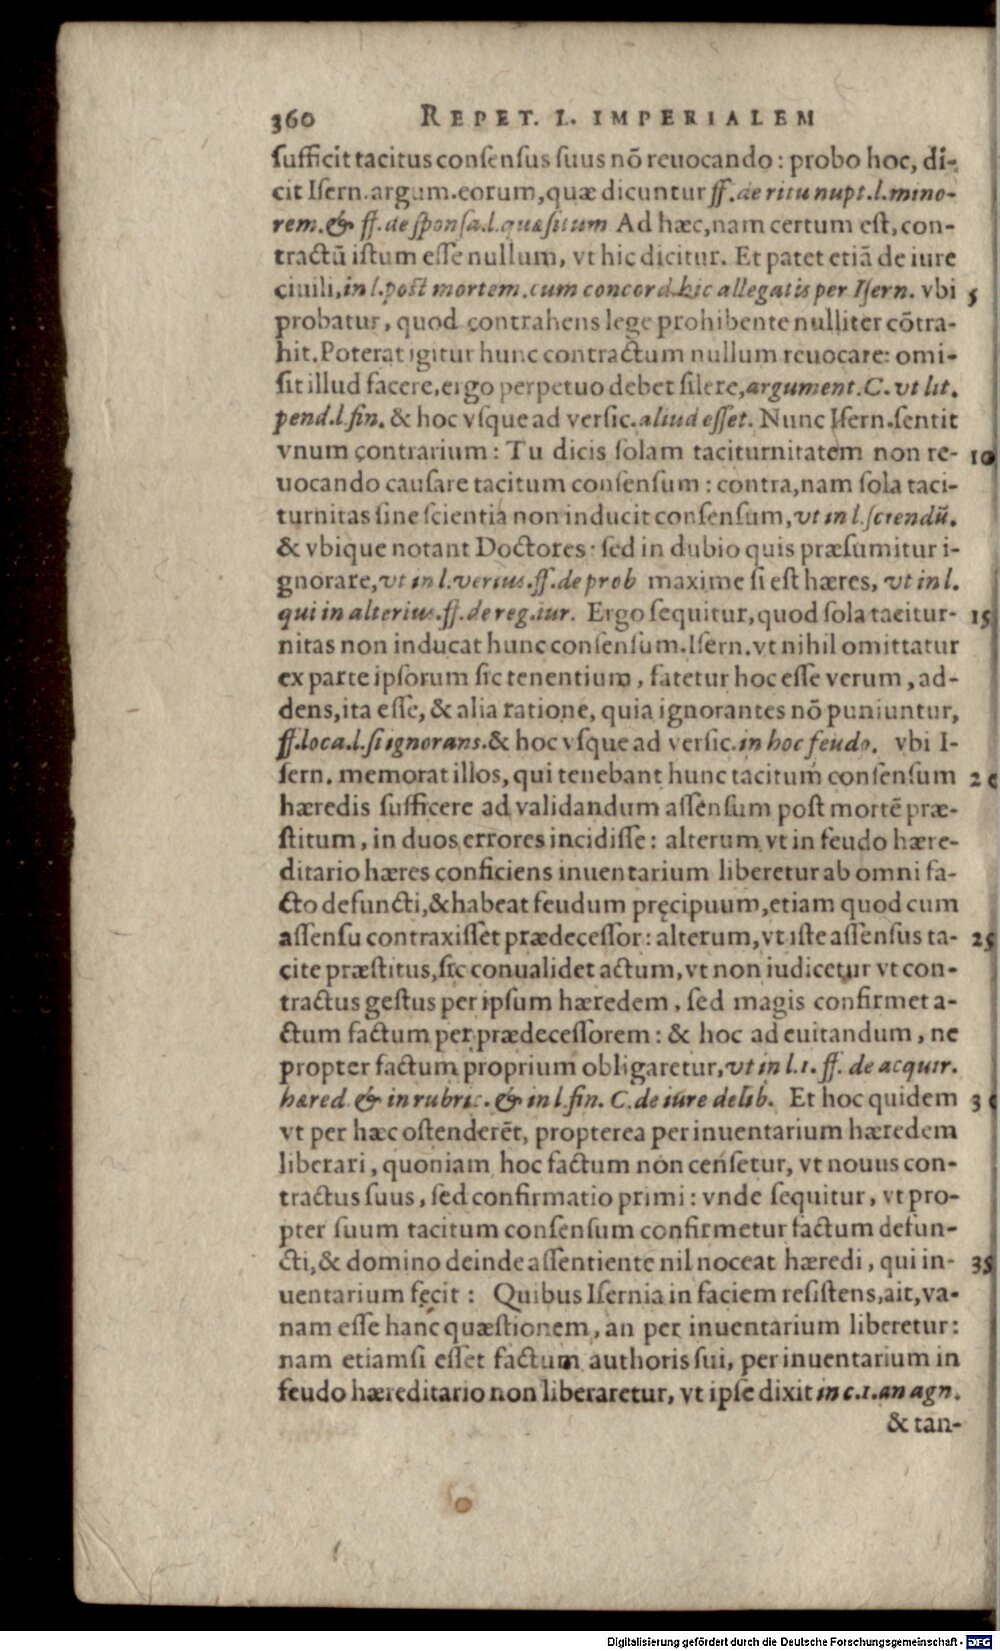 360 REPET. L. IMPERIALEM
ſufficit tacitus conſenſus ſuus nō reuocando: probo hoc, di-
cit Iſern. argum. eorum, quæ dicuntur ff. de ritu nupt. l. mino-
rem. & ff. de ſponſa. l. quæſitum Ad hæc, nam certum eſt, con-
tractū iſtum eſſe nullum, vt hic dicitur. Et patet etiā de iure
ciuili, in l. poſt mortem. cum concord. hic allegatis per Iſern. vbi 5
probatur, quod contrahens lege prohibente nulliter cōtra-
hit. Poterat igitur hunc contractum nullum reuocare: omi-
ſit illud facere, ergo perpetuo debet ſilere, argument. C. vt lit.
pend. l. fin. & hoc vſque ad verſic. aliud eſſet. Nunc Iſern. ſentit
vnum contrarium: Tu dicis ſolam taciturnitatem non re- 10
uocando cauſare tacitum conſenſum: contra, nam ſola taci-
turnitas ſine ſcientia non inducit conſenſum, vt in l. ſciendū.
& vbique notant Doctores: ſed in dubio quis præſumitur i-
gnorare, vt in l. verius. ff. de prob maxime ſi eſt hæres, vt in l.
qui in alterius. ff. de reg. iur. Ergo ſequitur, quod ſola tacitur- 15
nitas non inducat hunc conſenſum. Iſern. vt nihil omittatur
ex parte ipſorum ſic tenentium, fatetur hoc eſſe verum, ad-
dens, ita eſſe, & alia ratione, quia ignorantes nō puniuntur,
ff. loca. l. ſi ignorans. & hoc vſque ad verſic. in hoc feudo. vbi I-
ſern. memorat illos, qui tenebant hunc tacitum conſenſum 20
hæredis ſufficere ad validandum aſſenſum poſt mortē præ-
ſtitum, in duos errores incidiſſe: alterum vt in feudo hære-
ditario hæres conficiens inuentarium liberetur ab omni fa-
cto defuncti, & habeat feudum pręcipuum, etiam quod cum
aſſenſu contraxiſſet prædeceſſor: alterum, vt iſte aſſenſus ta- 25
cite præſtitus, ſic conualidet actum, vt non iudicetur vt con-
tractus geſtus per ipſum hæredem, ſed magis confirmet a-
ctum factum per prædeceſſorem: & hoc ad euitandum, ne
propter factum proprium obligaretur, vt in l. 1. ff. de acquir.
hæred. & in rubric. & in l. fin. C. de iure delib. Et hoc quidem 30
vt per hæc oſtenderēt, propterea per inuentarium hæredem
liberari, quoniam hoc factum non cenſetur, vt nouus con-
tractus ſuus, ſed confirmatio primi: vnde ſequitur, vt pro-
pter ſuum tacitum conſenſum confirmetur factum defun-
cti, & domino deinde aſſentiente nil noceat hæredi, qui in- 35
uentarium fecit: Quibus Iſernia in faciem reſiſtens, ait, va-
nam eſſe hanc quæſtionem, an per inuentarium liberetur:
nam etiamſi eſſet factum authoris ſui, per inuentarium in
feudo hæreditario non liberaretur, vt ipſe dixit in c. 1. an agn.
& tan-
Digitalisierung gefördert durch die Deutsche Forschungsgemeinschaft - DFG